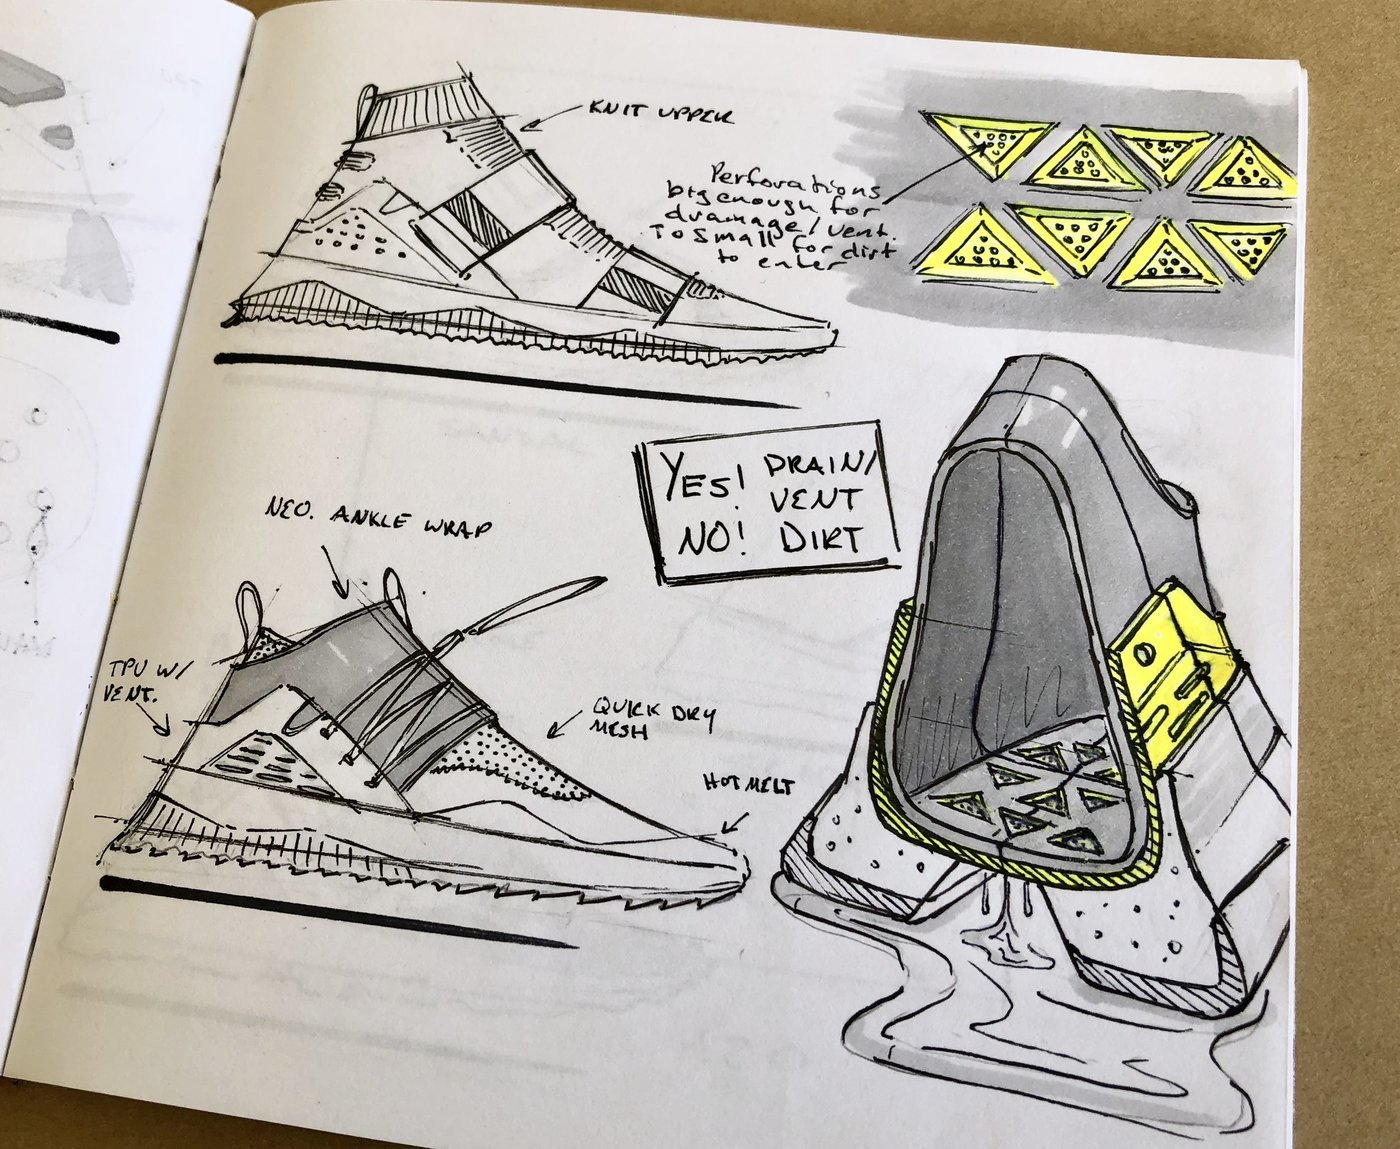 KNIT UPPER
Perforations
big enough for
drainage/vent.
To small for dirt
to enter
YES! DRAIN/
VENT
NO! DIRT
NEO. ANKLE WRAP
TPU W/
VENT.
QUICK DRY
MESH
HOT MELT